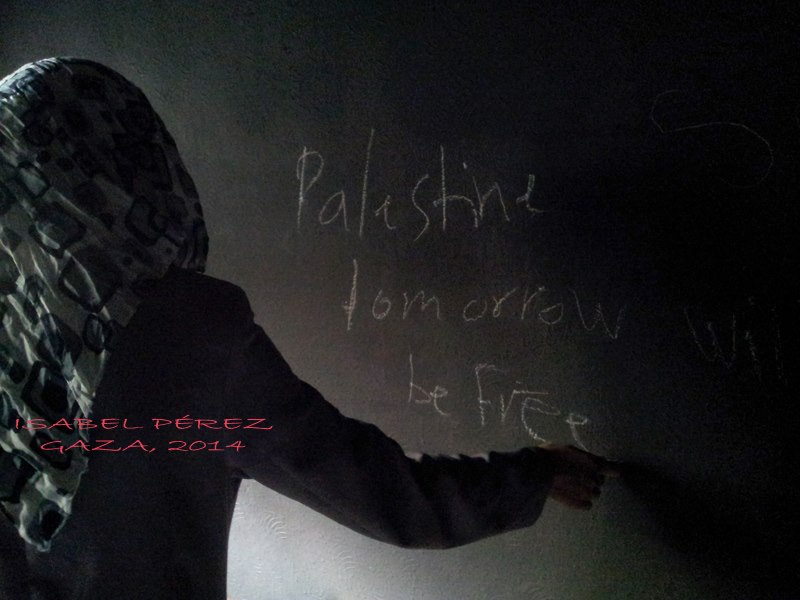 Palestine
tomorrow will
be Free
ISABEL PÉREZ
GAZA, 2014